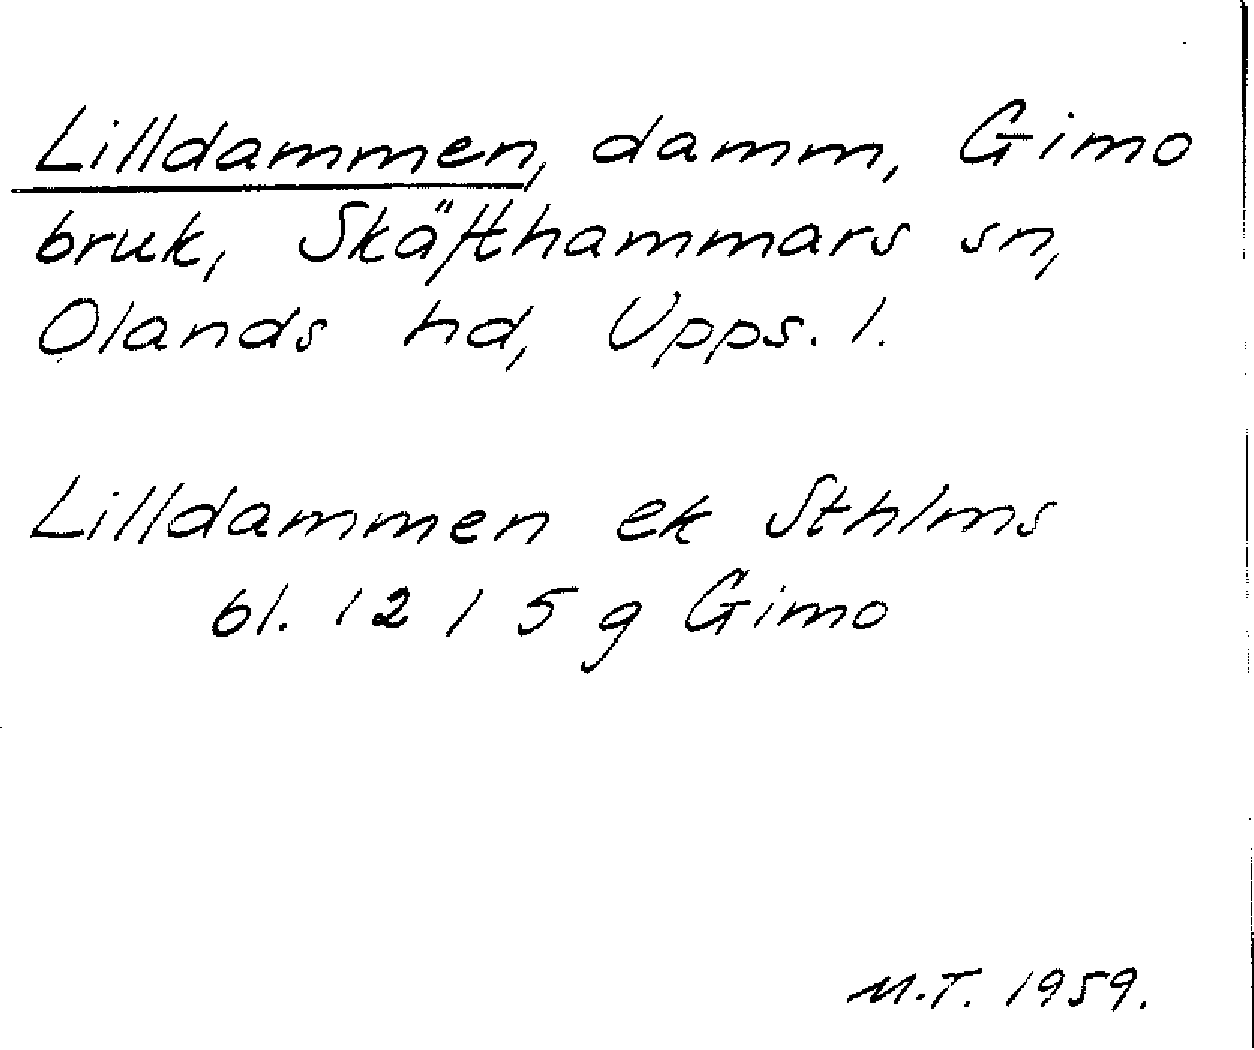 Lilldammen, damm, Gimo
bruk, Skäfthammars sn,
Olands hd, Upps. l.
Lilldammen ek Sthlms
bl. 12 I 5 g Gimo
M.T. 1959.